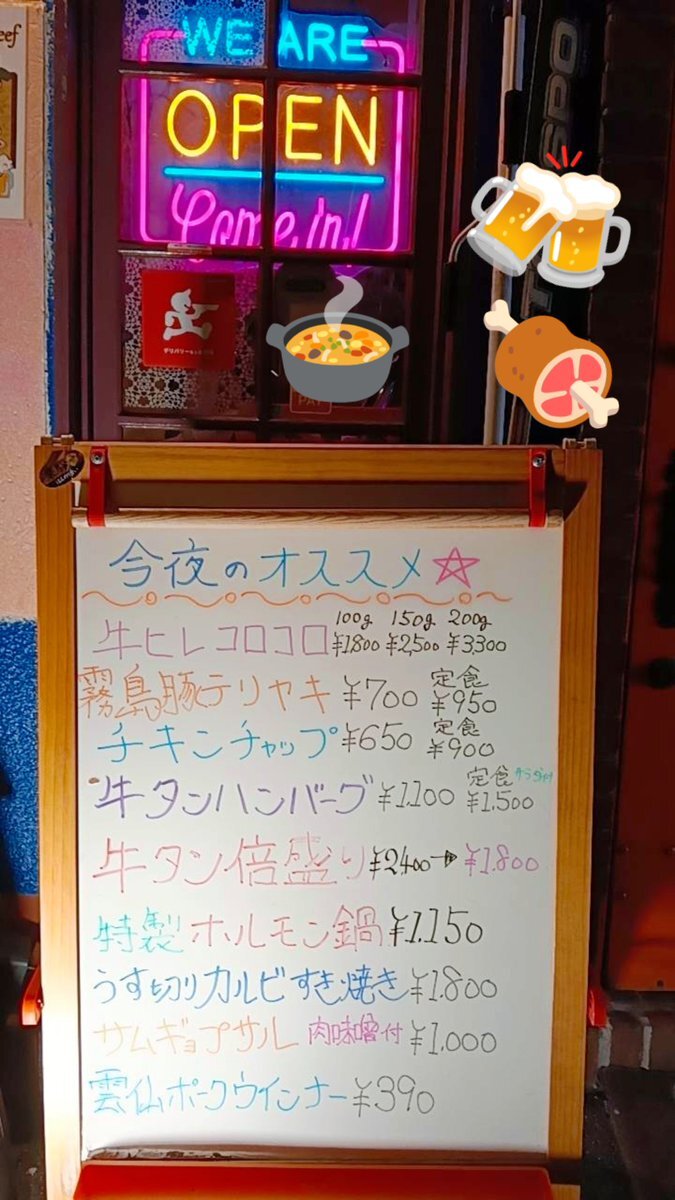 WE ARE
OPEN
Come in!
今夜のオススメ☆
100g 150g 200g
牛ヒレコロコロ ¥1800 ¥2,500 ¥3,300
定食
霧島豚テリヤキ ¥700 ¥950
定食
チキンチャップ ¥650 ¥900
定食 サラダ付
牛タンハンバーグ ¥1.100 ¥1,500
牛タン倍盛り ¥2400→¥1.800
特製ホルモン鍋 ¥1.150
うす切りカルビすき焼き ¥1.800
サムギョプサル 肉味噌付 ¥1,000
雲仙ポークウインナー ¥390